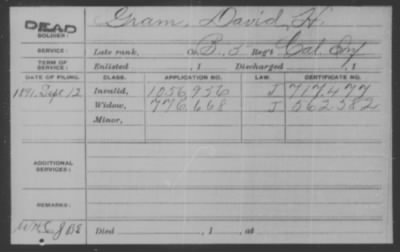 DEAD Gram, David H.
SOLDIER:
SERVICE: Late rank, Co. B. 5 Reg't Cal Inf
TERM OF SERVICE: Enlisted , 1 Discharged , 1
DATE OF FILING. CLASS. APPLICATION NO. LAW. CERTIFICATE NO.
1891. Sept 12 Invalid, 1056956 J 717477
Widow, 776668 J 562582
Minor,
ADDITIONAL SERVICES:
REMARKS:
Died , 1 , at